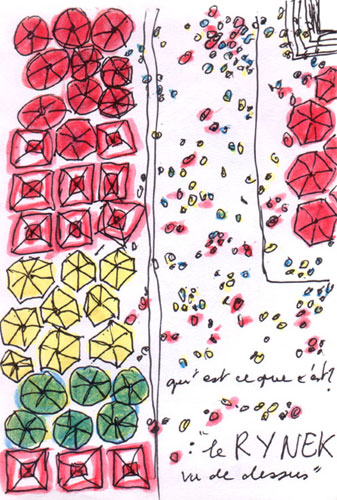 qu'est ce que c'est?
: "le RYNEK
vu de dessus"